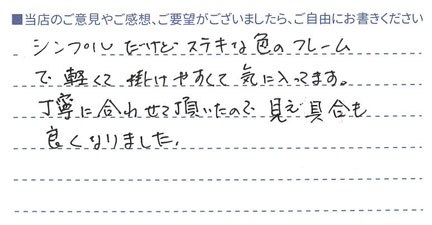 ■当店のご意見やご感想、ご要望がございましたら、ご自由にお書きください
シンプルだけどステキな色のフレーム
で軽くて掛けやすくて気に入ってます。
丁寧に合わせて頂いたので見え具合も
良くなりました。